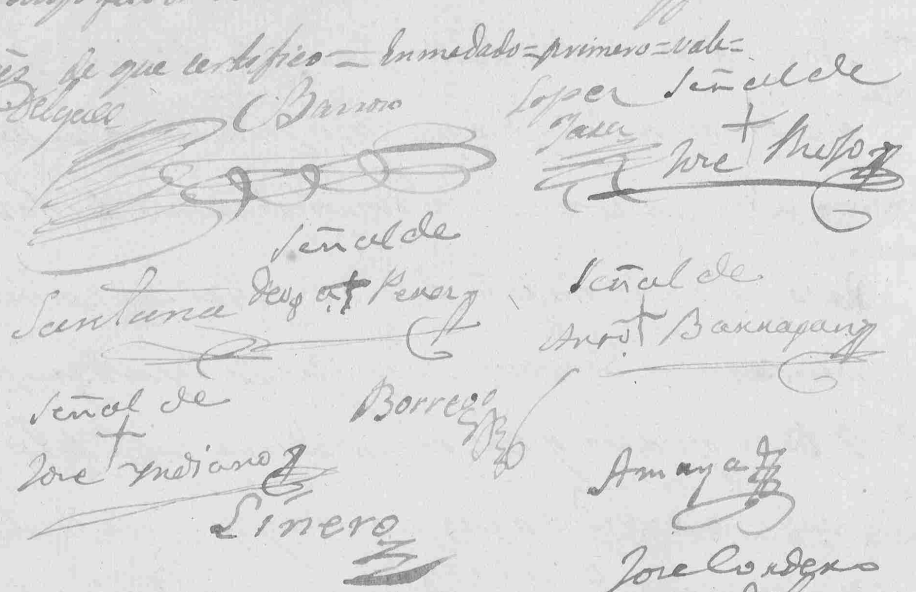 de que certifico = Enmedado = primero = vale =
Barroso
Lopez
Señal de
+
Jose
Señal de
Santana
Diego + Perez
Señal de
Anto + Barragan
Señal de
+
Jose Yndiano
Borrego
Linero
Amaya
Jose Cordero